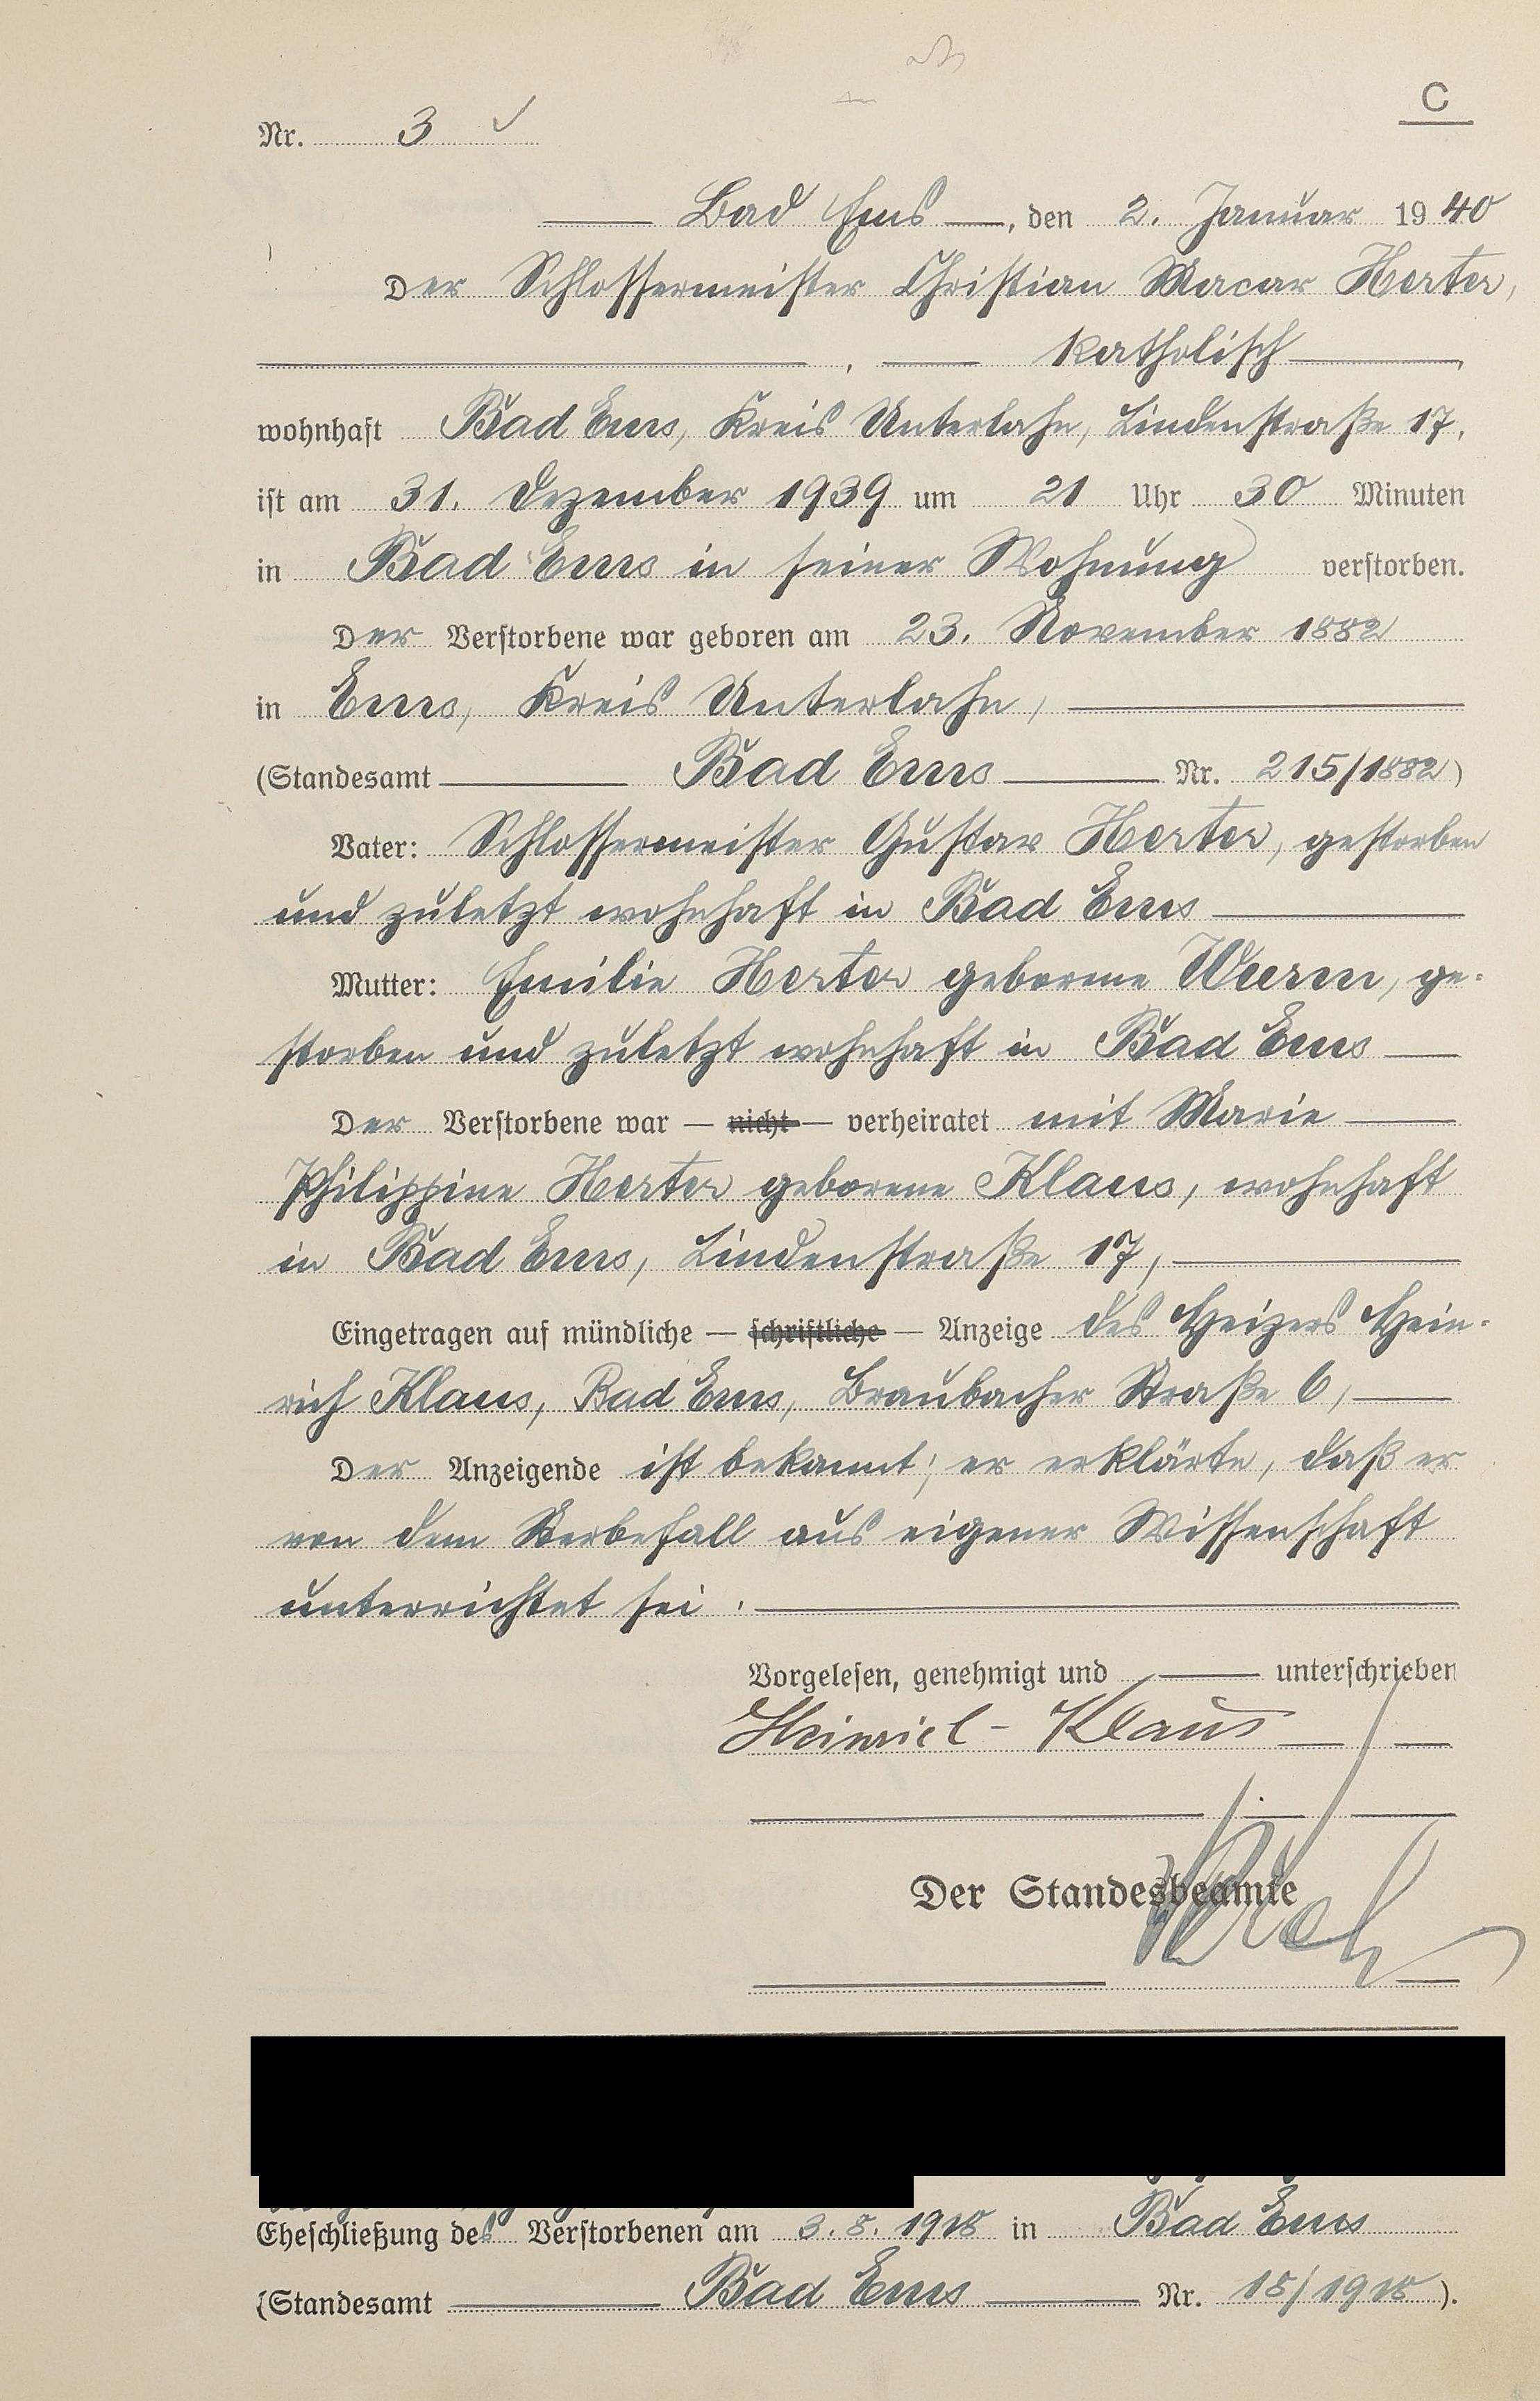 C
Nr. 3
Bad Ems, den 2. Januar 1940
Der Schlossermeister Christian Macar Herter,
, katholisch,
wohnhaft Bad Ems, Kreis Unterlahn, Lindenstraße 17,
ist am 31. Dezember 1939 um 21 Uhr 30 Minuten
in Bad Ems in seiner Wohnung verstorben.
Der Verstorbene war geboren am 23. November 1882
in Ems, Kreis Unterlahn,
(Standesamt Bad Ems Nr. 215/1882)
Vater: Schlossermeister Gustav Herter, gestorben
und zuletzt wohnhaft in Bad Ems
Mutter: Emilie Herter geborene Wurm, ge-
storben und zuletzt wohnhaft in Bad Ems
Der Verstorbene war — nicht — verheiratet mit Marie
Philippine Herter geborene Klaus, wohnhaft
in Bad Ems, Lindenstraße 17,
Eingetragen auf mündliche — schriftliche — Anzeige des Heizers Hein-
rich Klaus, Bad Ems, Braubacher Straße 6,
Der Anzeigende ist bekannt; er erklärte, daß er
von dem Sterbefall aus eigener Wissenschaft
unterrichtet sei.
Vorgelesen, genehmigt und unterschrieben
Heinrich Klaus
Der Standesbeamte
Eheschließung des Verstorbenen am 3. 8. 1918 in Bad Ems
(Standesamt Bad Ems Nr. 18/1918).